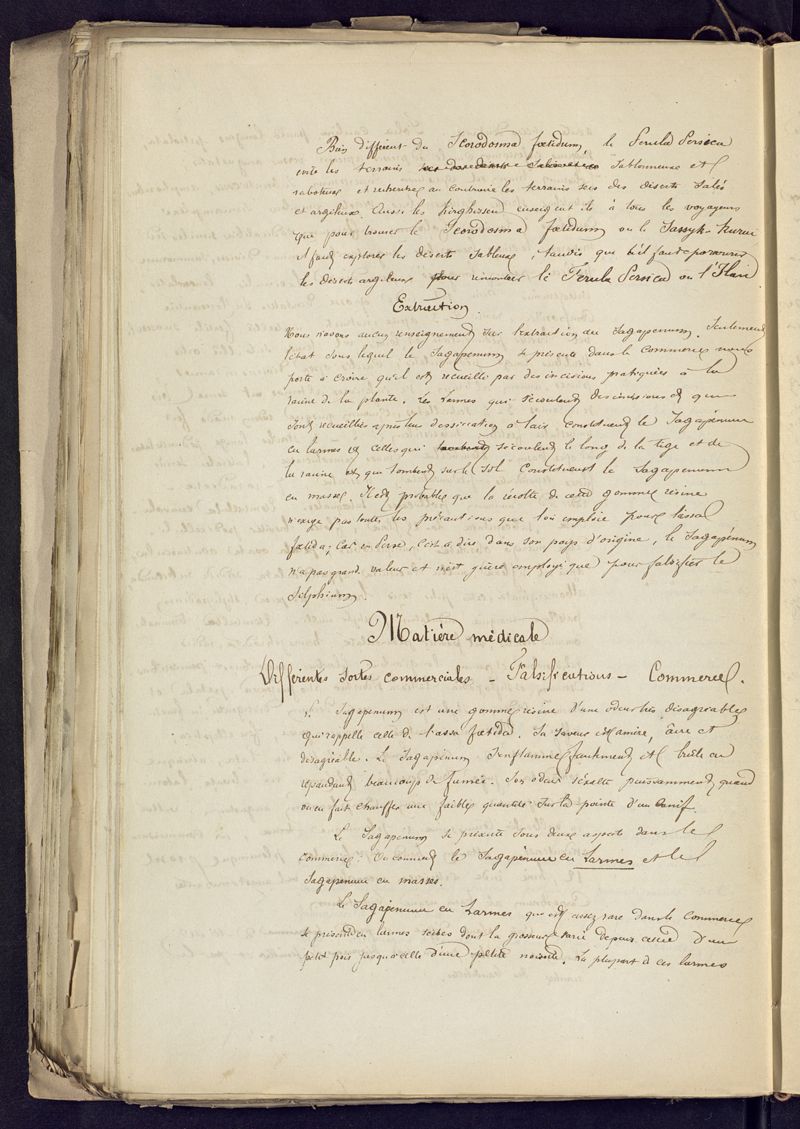 Bien différent du Scorodosma fœtidum, le Ferula Persica
évite les terrains sablonneux et
raboteux et recherche au contraire les terrains secs des déserts salés
et argileux. Aussi les Kirghissen enseignent ils à tous les voyageurs
que pour trouver le Scorodosma fœtidum ou le Sassyk-Kurai
il faut explorer les déserts sableux, tandis qu'il faut parcourir
les déserts argileux pour rencontrer le Ferula Persica ou l'Ilan
Extraction.
Nous n'avons aucun renseignement sur l'extraction du Sagapenum. Seulement
l'état sous lequel le Sagapenum se présente dans le commerce nous
porte à croire qu'il est recueilli par des incisions pratiquées à la
racine de la plante. Les larmes qui s'écoulent des incisions et qui
sont recueillies après leur dessiccation à l'air constituent le Sagapénum
en larmes et celles qui s'écoulent le long de la tige et de
la racine et qui tombent sur le sol constituent le Sagapenum
en masses. Il est probable que la récolte de cette gomme résine
n'exige pas toutes les précautions que l'on emploie pour l'assa
fœtida; car en Perse, c'est à dire dans son pays d'origine, le Sagapénum
n'a pas grande valeur et n'est guère employé que pour falsifier le
Silphium.
Matière médicale
Différentes sortes commerciales - Falsifications - Commerce.
Le Sagapenum est une gomme résine d'une odeur très désagréable
qui rappelle celle de l'assa fœtida. Sa saveur est amère, âcre et
désagréable. Le Sagapénum s'enflamme facilement et brûle en
répandant beaucoup de fumée. Son odeur s'exalte puissamment quand
on en fait chauffer une faible quantité sur la pointe d'un canif.
Le Sagapénum se présente sous deux aspects dans le
commerce: On connait le Sagapénum en Larmes et le
Sagapénum en masses.
Le Sagapénum en Larmes qui est assez rare dans le commerce
se présente en larmes isolées dont la grosseur varie depuis celle d'un
petit pois jusqu'à celle d'une petite noisette. La plupart de ces larmes